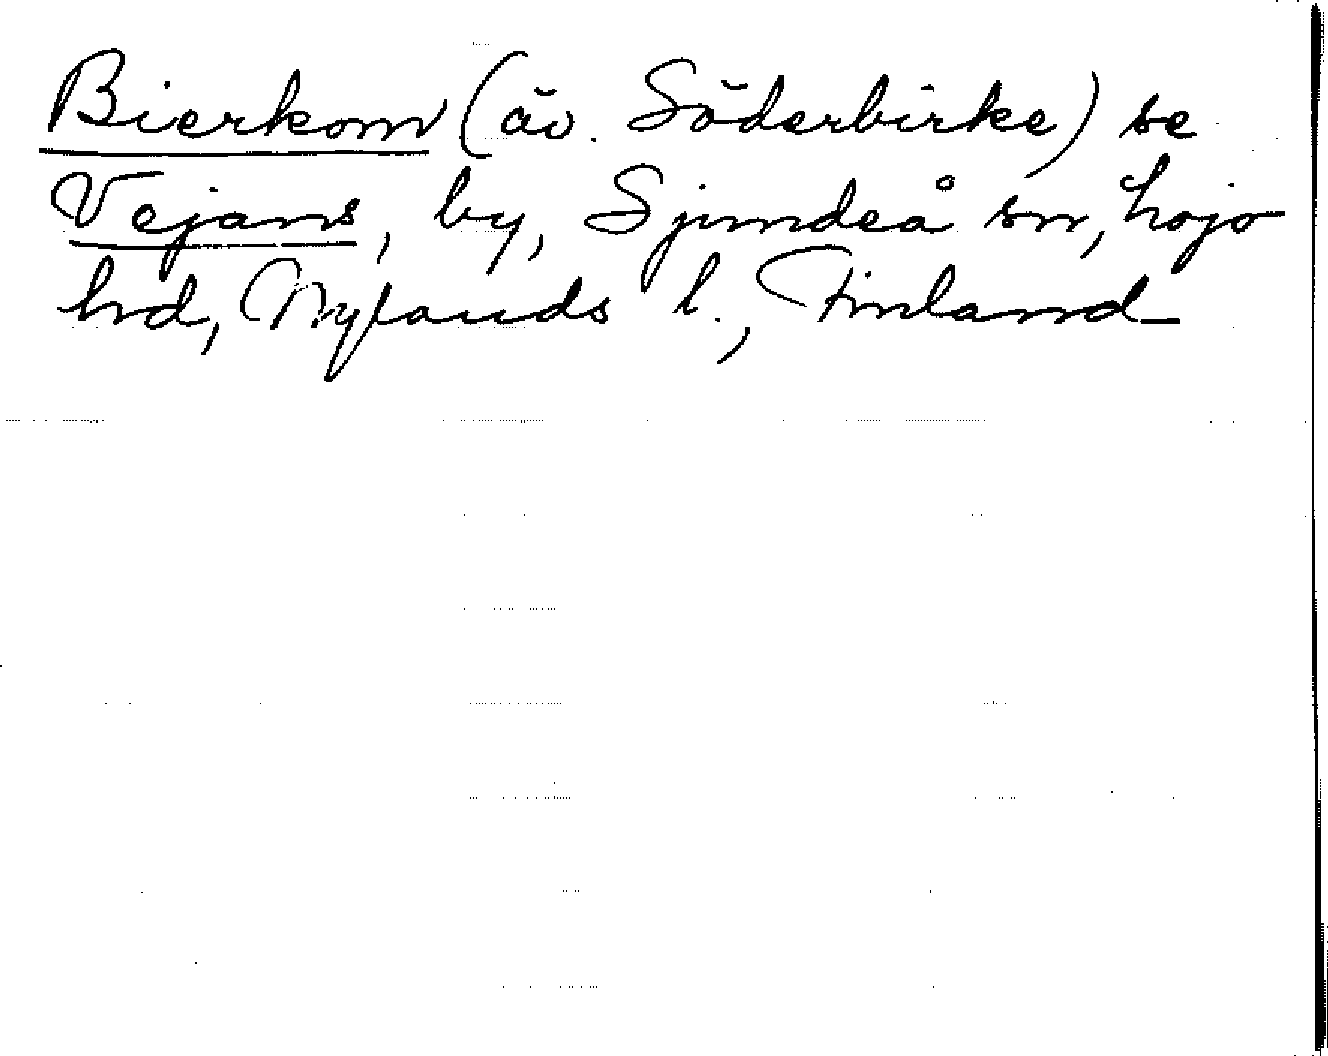 Bierkom (äv. Söderbirke) se
Vejans, by, Sjundeå sn, Lojo
hd, Nylands l., Finland